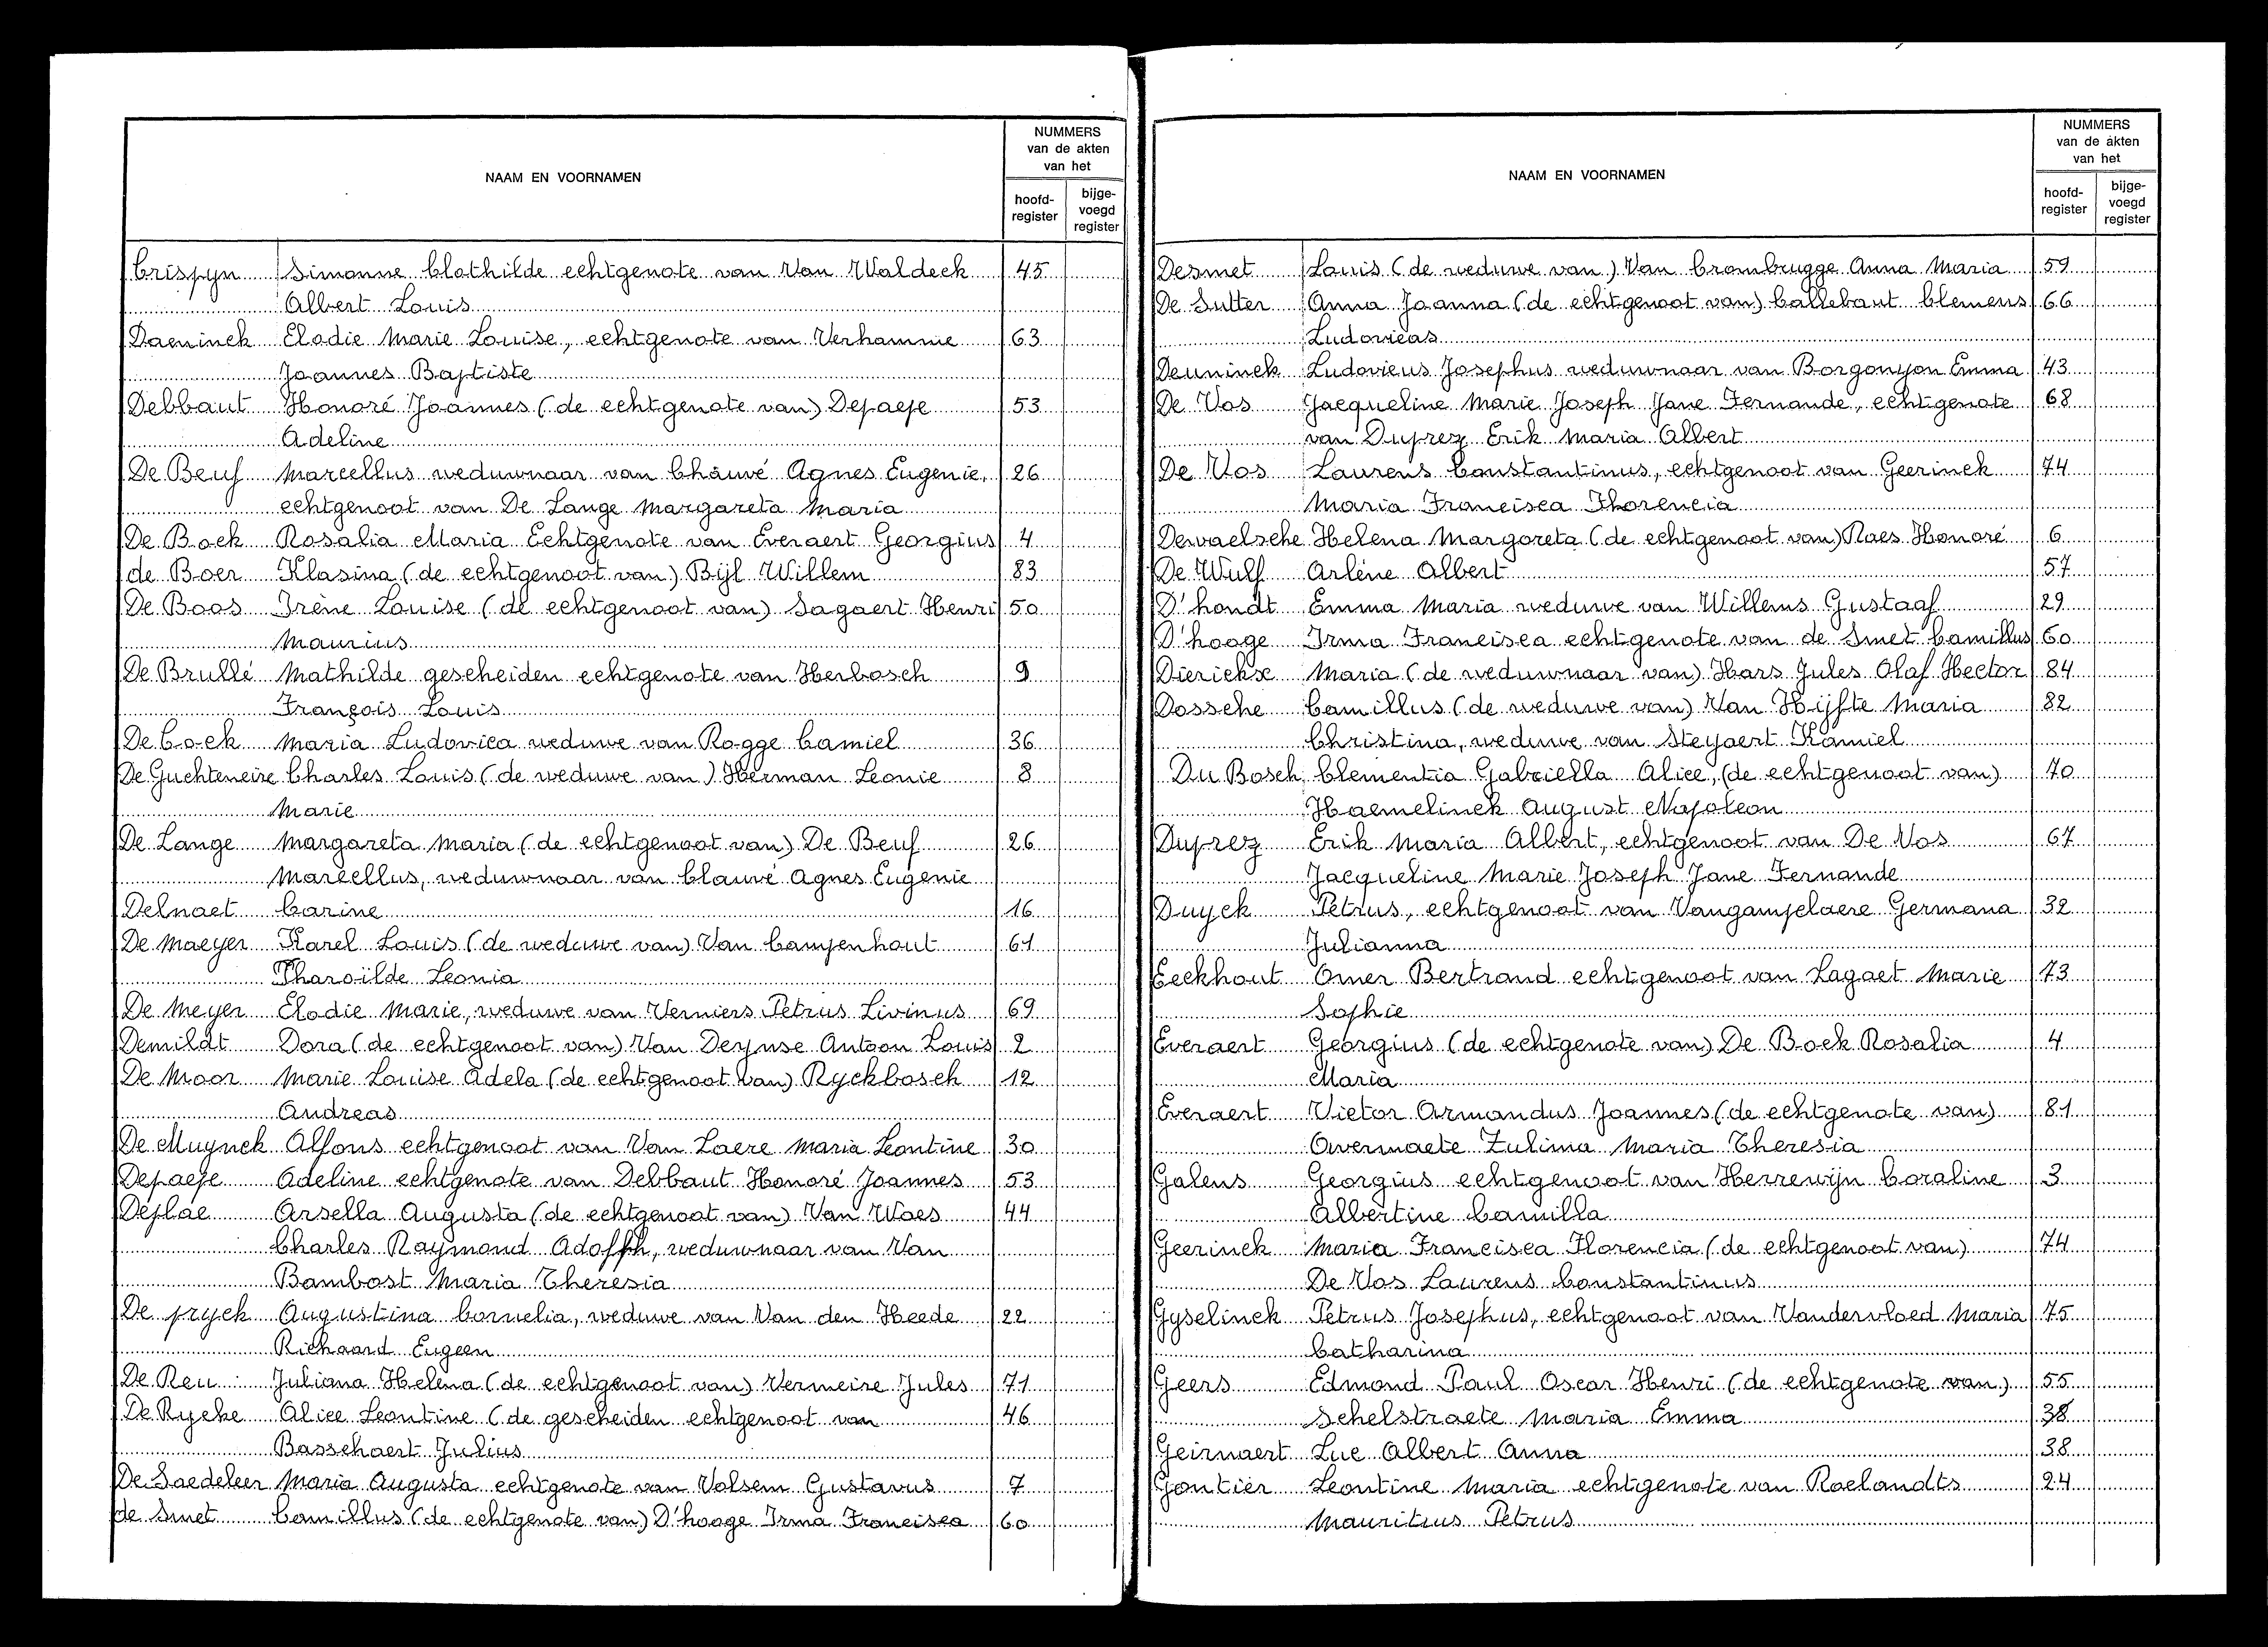 NAAM EN VOORNAMEN
NUMMERS
van de akten
van het
hoofd-
register
bijge-
voegd
register
Crispyn Simonne Clothilde echtgenote van Van Waldeck 45
Albert Louis
Daeninck Elodie Marie Louise, echtgenote van Verhamme 63
Joannes Baptiste
Debbaut Honoré Joannes (de echtgenote van) Depaepe 53
Adeline
De Beuf Marcellus weduwnaar van Chauvé Agnes Eugenie, 26
echtgenoot van De Lange Margareta Maria
De Bock Rosalia Maria Echtgenote van Everaert Georgius 4
de Boer Klasina (de echtgenoot van) Bijl Willem 83
De Boos Irène Louise (de echtgenoot van) Sagaert Henri 50
Maurius
De Brullé Mathilde gescheiden echtgenote van Herbosch 9
François Louis
De Cock Maria Ludovica weduwe van Rogge Camiel 36
De Guchteneire Charles Louis (de weduwe van) Herman Leonie 8
Marie
De Lange Margareta Maria (de echtgenoot van) De Beuf 26
Marcellus, weduwnaar van Clauvé Agnes Eugenie
Delnaet Carine 16
De Maeyer Karel Louis (de weduwe van) Van Campenhout 61
Pharoïlde Leonia
De Meyer Elodie Marie, weduwe van Verniers Petrus Livinus 69
Demildt Dora (de echtgenoot van) Van Deynse Antoon Louis 2
De Moor Marie Louise Adela (de echtgenoot van) Ryckbosch 12
Andreas
De Muynck Alfons echtgenoot van Van Laere Maria Leontine 30
Depaepe Adeline echtgenote van Debbaut Honoré Joannes 53
Deplae Arsella Augusta (de echtgenoot van) Van Waes 44
Charles Raymond Adolph, weduwnaar van Van
Bambost Maria Theresia
De pryck Augustina Cornelia, weduwe van Van den Heede 22
Richaard Eugeen
De Reu Juliana Helena (de echtgenoot van) Vermeire Jules 71
De Rycke Alice Leontine (de gescheiden echtgenoot van 46
Bassehaert Julius
De Saedeleer Maria Augusta echtgenote van Volsem Gustavus 7
de Smet Camillus (de echtgenote van) D'hooge Irma Francisca 60
NAAM EN VOORNAMEN
NUMMERS
van de akten
van het
hoofd-
register
bijge-
voegd
register
Desmet Louis (de weduwe van) Van Crombrugge Anna Maria 59
De Sutter Anna Joanna (de echtgenoot van) Callebaut Clemens 66
Ludovicas
Deuninck Ludovicus Josephus weduwnaar van Borgonjon Emma 43
De Vos Jacqueline Marie Joseph Jane Fernande, echtgenote 68
van Duprez Erik Maria Albert
De Vos Laurens Constantinus, echtgenoot van Geerinck 74
Maria Francisca Florencia
Dewaelsche Helena Margareta (de echtgenoot van) Raes Honoré 6
De Wulf Arlène Albert 57
D'hondt Emma Maria weduwe van Willems Gustaaf 29
D'hooge Irma Francisca echtgenote van de Smet Camillus 60
Dierickx Maria (de weduwnaar van) Hars Jules Olaf Hector 84
Dossche Camillus (de weduwe van) Van Hijfte Maria 82
Christina, weduwe van Steyaert Kamiel
Du Bosch Clementia Gabriella Alice, (de echtgenoot van) 70
Haemelinck August Napoleon
Duprez Erik Maria Albert, echtgenoot van De Vos 67
Jacqueline Marie Joseph Jane Fernande
Duyck Petrus, echtgenoot van Vangampelaere Germana 32
Julianna
Eeckhout Omer Bertrand echtgenoot van Lagaet Marie 73
Sophie
Everaert Georgius (de echtgenote van) De Bock Rosalia 4
Maria
Everaert Victor Armandus Joannes (de echtgenote van) 81
Overmaete Zulima Maria Theresia
Galens Georgius echtgenoot van Herrewijn Coraline 3
Albertine Camilla
Geerinck Maria Francisca Florencia (de echtgenoot van) 74
De Vos Laurens Constantinus
Gyselinck Petrus Josephus, echtgenoot van Vandervloed Maria 75
Catharina
Geers Edmond Paul Oscar Henri (de echtgenote van) 55
Schelstraete Maria Emma 38
Geirnaert Luc Albert Anna 38
Gontier Leontine Maria echtgenote van Roelandts 24
Mauritius Petrus